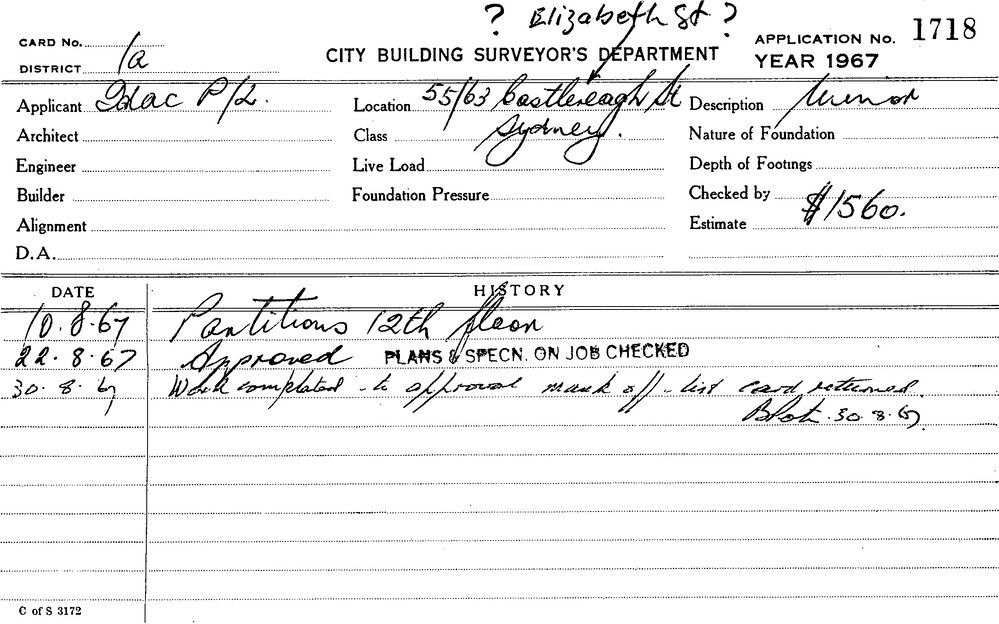 ? Elizabeth St ?
CARD No.
DISTRICT 1a
CITY BUILDING SURVEYOR'S DEPARTMENT
APPLICATION No. 1718
YEAR 1967
Applicant P/L.
Location 55/63 Castlereagh St
Sydney.
Description Minor
Architect
Class
Nature of Foundation
Engineer
Live Load
Depth of Footings
Builder
Foundation Pressure
Checked by
Alignment
Estimate $1560.
D.A.
DATE HISTORY
10.8.67 Partitions 12th floor
22.8.67 Approved PLANS & SPECN. ON JOB CHECKED
30.8.67 Work completed to approval mark off list card returned.
30.8.67.
C of S 3172